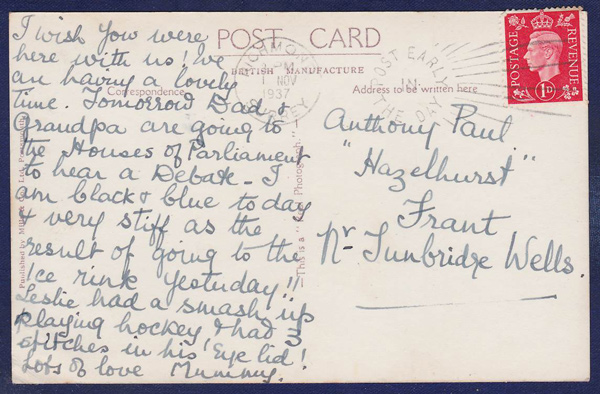 POST CARD
BRITISH MANUFACTURE
Correspondence
Address to be written here
I wish you were
here with us! We
an having a lovely
time. Tomorrow Dad &
Grandpa are going to
the Houses of Parliament
to hear a Debate - I
am black & blue today
& very stiff as the
result of going to the
Ice rink yesterday!!
Leslie had a smash up
playing hockey & had 3
stitches in his Eye lid!
Lots of love Mummy.
Anthony Paul
"Hazelhurst"
Frant
Nr Tunbridge Wells.
RICHMOND
PM
NOV
1937
SURREY
POST EARLY
IN
THE DAY
POSTAGE
REVENUE
1D
Published by
Ltd.,
This is a "
Photograph."